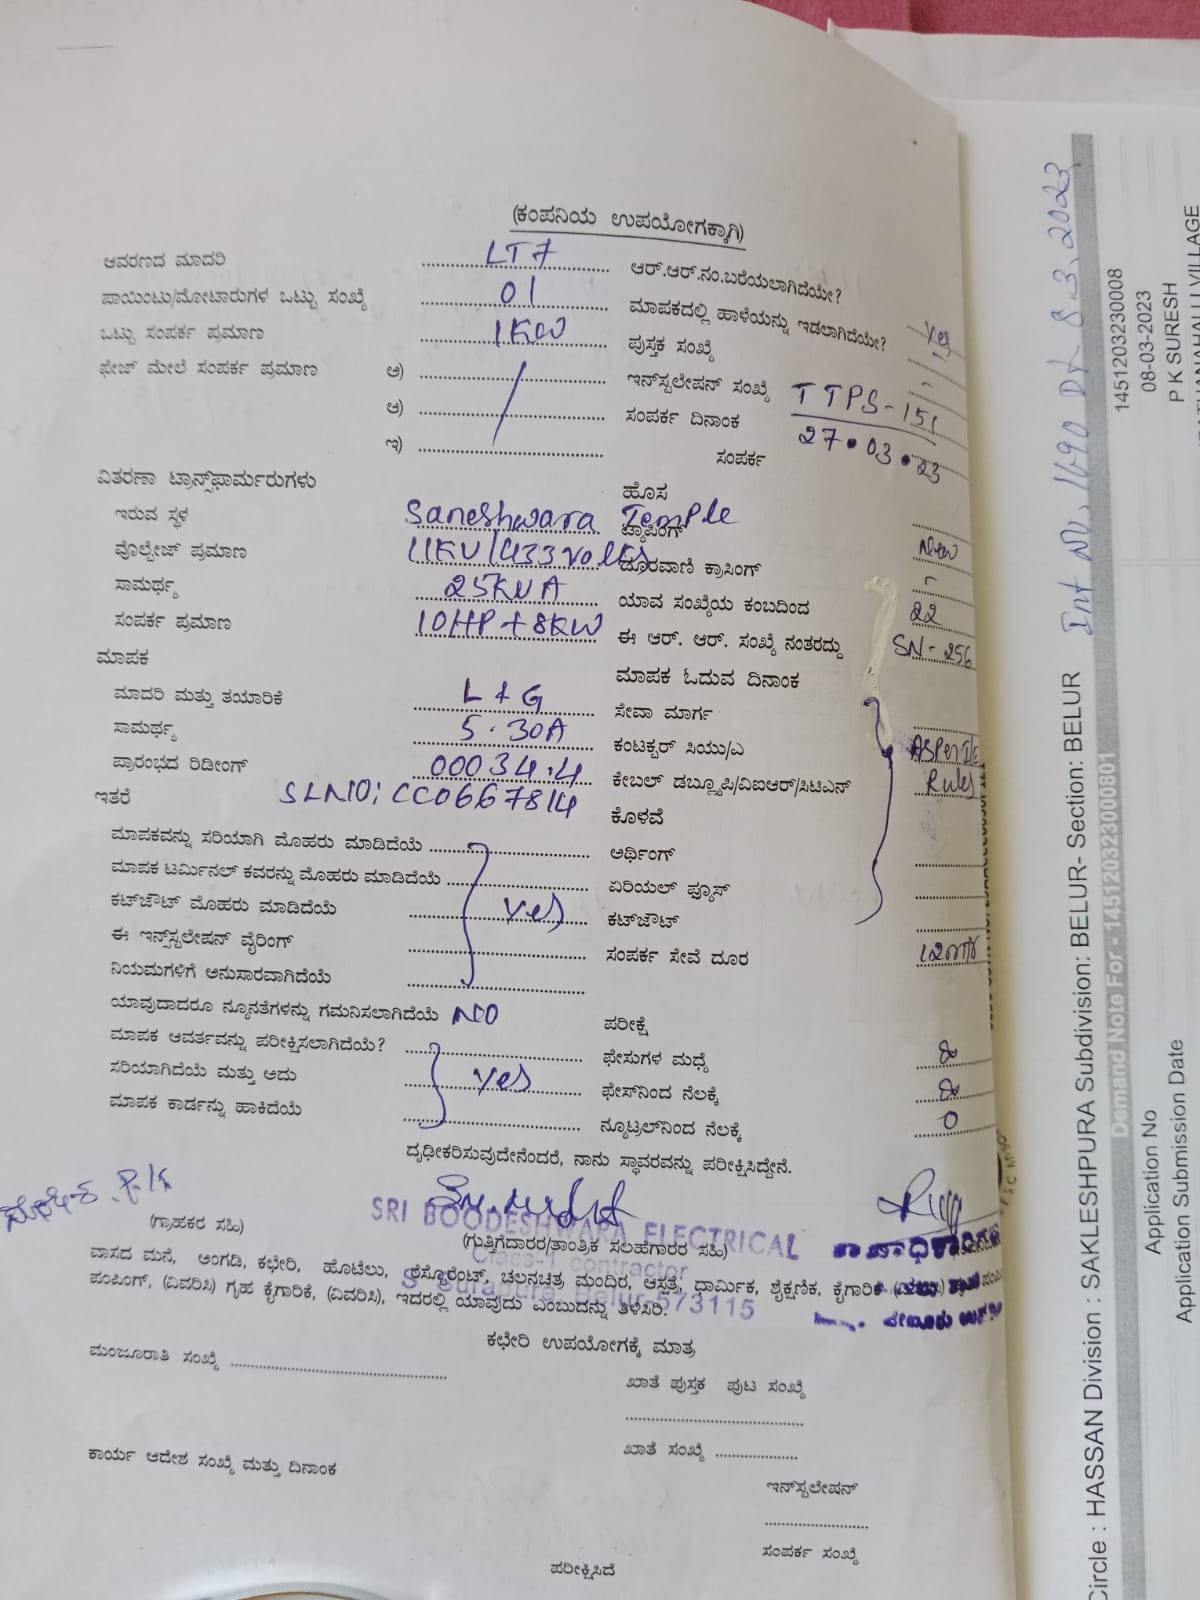 (ಕಂಪನಿಯ ಉಪಯೋಗಕ್ಕಾಗಿ)
ಆವರಣದ ಮಾದರಿ LT7 ಆರ್.ಆರ್.ನಂ.ಬರೆಯಲಾಗಿದೆಯೇ?
ಪಾಯಿಂಟು/ಮೋಟಾರುಗಳ ಒಟ್ಟು ಸಂಖ್ಯೆ 01 ಮಾಪಕದಲ್ಲಿ ಹಾಳೆಯನ್ನು ಇಡಲಾಗಿದೆಯೇ? Yes
ಒಟ್ಟು ಸಂಪರ್ಕ ಪ್ರಮಾಣ 1KW ಪುಸ್ತಕ ಸಂಖ್ಯೆ -
ಫೇಜ್ ಮೇಲೆ ಸಂಪರ್ಕ ಪ್ರಮಾಣ ಅ) ಇನ್‌ಸ್ಟಲೇಷನ್ ಸಂಖ್ಯೆ TTPS-151
ಆ) ಸಂಪರ್ಕ ದಿನಾಂಕ 27.03.23
ಇ) ಸಂಪರ್ಕ
ವಿತರಣಾ ಟ್ರಾನ್ಸ್‌ಫಾರ್ಮರುಗಳು ಹೊಸ
ಇರುವ ಸ್ಥಳ Saneshwara Temple ಟ್ಯಾಪಿಂಗ್ New
ವೊಲ್ಟೇಜ್ ಪ್ರಮಾಣ 11KV/433 volts ದೂರವಾಣಿ ಕ್ರಾಸಿಂಗ್ -
ಸಾಮರ್ಥ್ಯ 25KVA ಯಾವ ಸಂಖ್ಯೆಯ ಕಂಬದಿಂದ 22
ಸಂಪರ್ಕ ಪ್ರಮಾಣ 10HP + 8KW ಈ ಆರ್. ಆರ್. ಸಂಖ್ಯೆ ನಂತರದ್ದು SN-256
ಮಾಪಕ ಮಾಪಕ ಓದುವ ದಿನಾಂಕ
ಮಾದರಿ ಮತ್ತು ತಯಾರಿಕೆ L+G ಸೇವಾ ಮಾರ್ಗ
ಸಾಮರ್ಥ್ಯ 5-30A ಕಂಟಕ್ಟರ್ ಸಿಯು/ಎ As per I/E
ಪ್ರಾರಂಭದ ರಿಡೀಂಗ್ 00034.4 ಕೇಬಲ್ ಡಬ್ಲ್ಯೂಪಿ/ವಿಐಆರ್/ಸಿಟಿಎನ್ Rules
ಇತರೆ SLNO: CC0667814 ಕೊಳವೆ
ಮಾಪಕವನ್ನು ಸರಿಯಾಗಿ ಮೊಹರು ಮಾಡಿದೆಯೆ ಅರ್ಥಿಂಗ್
ಮಾಪಕ ಟರ್ಮಿನಲ್ ಕವರನ್ನು ಮೊಹರು ಮಾಡಿದೆಯೆ ಏರಿಯಲ್ ಫ್ಯೂಸ್
ಕಟ್‌ಔಟ್ ಮೊಹರು ಮಾಡಿದೆಯೆ yes ಕಟ್‌ಔಟ್
ಈ ಇನ್ಸ್‌ಸ್ಟಲೇಷನ್ ವೈರಿಂಗ್ ಸಂಪರ್ಕ ಸೇವೆ ದೂರ 12mtr
ನಿಯಮಗಳಿಗೆ ಅನುಸಾರವಾಗಿದೆಯೆ
ಯಾವುದಾದರೂ ನ್ಯೂನತೆಗಳನ್ನು ಗಮನಿಸಲಾಗಿದೆಯೆ NO ಪರೀಕ್ಷೆ
ಮಾಪಕ ಆವರ್ತವನ್ನು ಪರೀಕ್ಷಿಸಲಾಗಿದೆಯೆ? ಫೇಸುಗಳ ಮಧ್ಯೆ ∞
ಸರಿಯಾಗಿದೆಯೆ ಮತ್ತು ಅದು yes ಫೇಸ್‌ನಿಂದ ನೆಲಕ್ಕೆ ∞
ಮಾಪಕ ಕಾರ್ಡನ್ನು ಹಾಕಿದೆಯೆ ನ್ಯೂಟ್ರಲ್‌ನಿಂದ ನೆಲಕ್ಕೆ 0
ದೃಢೀಕರಿಸುವುದೇನೆಂದರೆ, ನಾನು ಸ್ಥಾವರವನ್ನು ಪರೀಕ್ಷಿಸಿದ್ದೇನೆ.
SRI BOODESHWARA ELECTRICAL
(ಗ್ರಾಹಕರ ಸಹಿ) (ಗುತ್ತಿಗೆದಾರರ/ತಾಂತ್ರಿಕ ಸಲಹೆಗಾರರ ಸಹಿ)
Class-1 contractor
ವಾಸದ ಮನೆ, ಅಂಗಡಿ, ಕಛೇರಿ, ಹೊಟೆಲು, ರೆಸ್ಟೋರೆಂಟ್, ಚಲನಚಿತ್ರ ಮಂದಿರ, ಆಸ್ಪತ್ರೆ, ಧಾರ್ಮಿಕ, ಶೈಕ್ಷಣಿಕ, ಕೈಗಾರಿಕೆ
Belur-573115
ಪಂಪಿಂಗ್, (ವಿವರಿಸಿ) ಗೃಹ ಕೈಗಾರಿಕೆ, (ವಿವರಿಸಿ), ಇದರಲ್ಲಿ ಯಾವುದು ಎಂಬುದನ್ನು ತಿಳಿಸಿರಿ.
ಕಛೇರಿ ಉಪಯೋಗಕ್ಕೆ ಮಾತ್ರ
ಮಂಜೂರಾತಿ ಸಂಖ್ಯೆ
ಖಾತೆ ಪುಸ್ತಕ ಪುಟ ಸಂಖ್ಯೆ
ಖಾತೆ ಸಂಖ್ಯೆ
ಕಾರ್ಯ ಆದೇಶ ಸಂಖ್ಯೆ ಮತ್ತು ದಿನಾಂಕ
ಇನ್‌ಸ್ಟಲೇಷನ್
ಸಂಪರ್ಕ ಸಂಖ್ಯೆ
ಪರೀಕ್ಷಿಸಿದೆ
Int No, 1690 Dt 8.3.2023
Circle : HASSAN Division : SAKLESHPURA Subdivision: BELUR- Section: BELUR
Demand Note For - 1451203230000801
Application No 1451203230008
Application Submission Date 08-03-2023
P K SURESH
VILLAGE